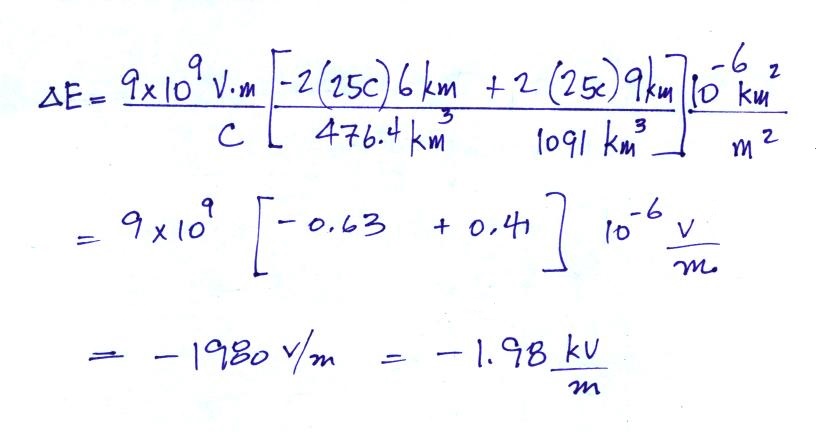 ΔE = 9x10⁹ V·m / C [ -2(25C)6 km / 476.4 km³ + 2(25C)9km / 1091 km³ ] 10⁻⁶ km² / m²
= 9x10⁹ [ -0.63 + 0.41 ] 10⁻⁶ V / m
= -1980 V/m = -1.98 kV / m